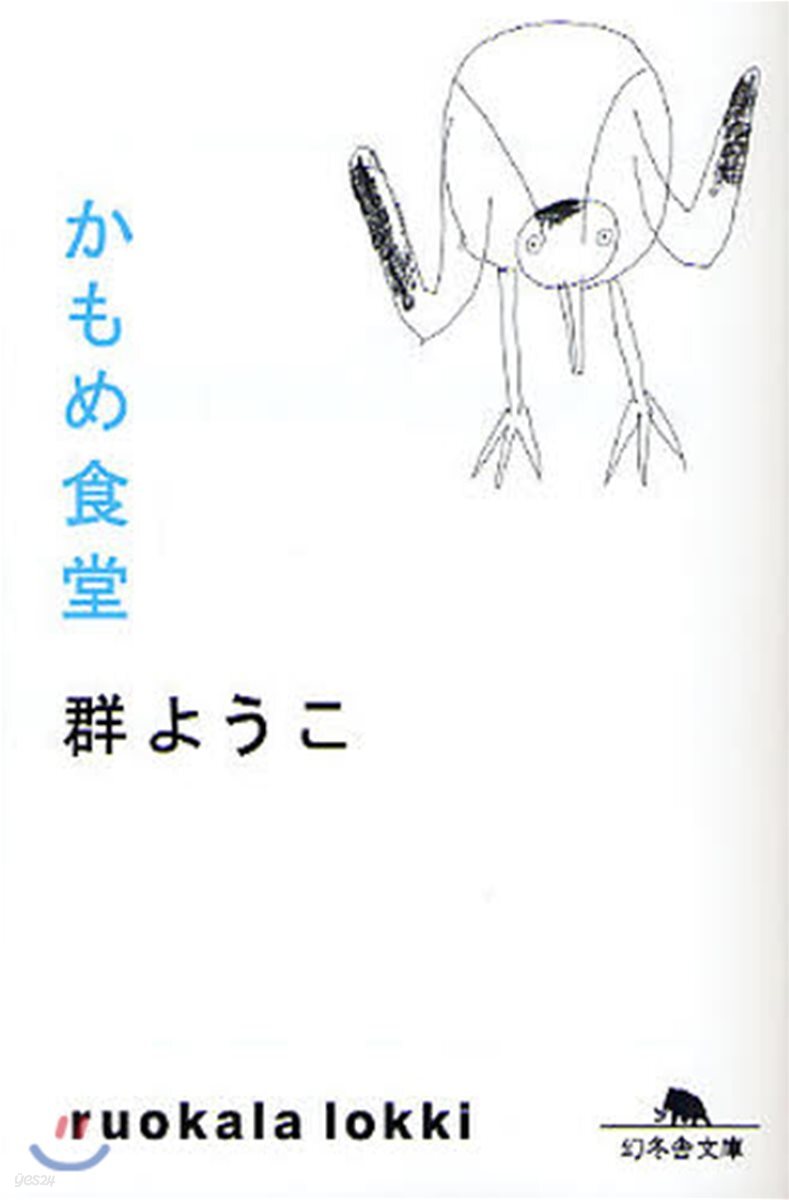 かもめ食堂
群ようこ
ruokala lokki
幻冬舎文庫
yes24